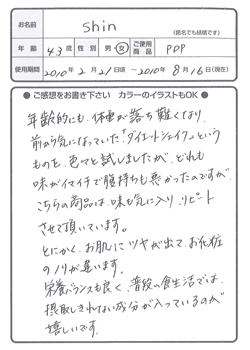 お名前
shin
(匿名でも結構です)
年齢 43才 性別 男・女 ご使用商品 PDP
使用期間 2010年2月21日頃 〜2010年8月16日(現在)
● ご感想をお書き下さい カラーのイラストもOK ●
年齢的にも、体重が落ち難くなり、
前から気になっていた「ダイエットシェイク」という
ものを、色々と試しましたが、どれも
味がイマイチで腹持ちも悪かったのですが、
こちらの商品は、味も気に入り、リピート
させて頂いています。
とにかく、お肌にツヤが出て、お化粧
のノリが違います。
栄養バランスも良く、普段の食生活では、
摂取しきれない成分が入っているのが
嬉しいです。